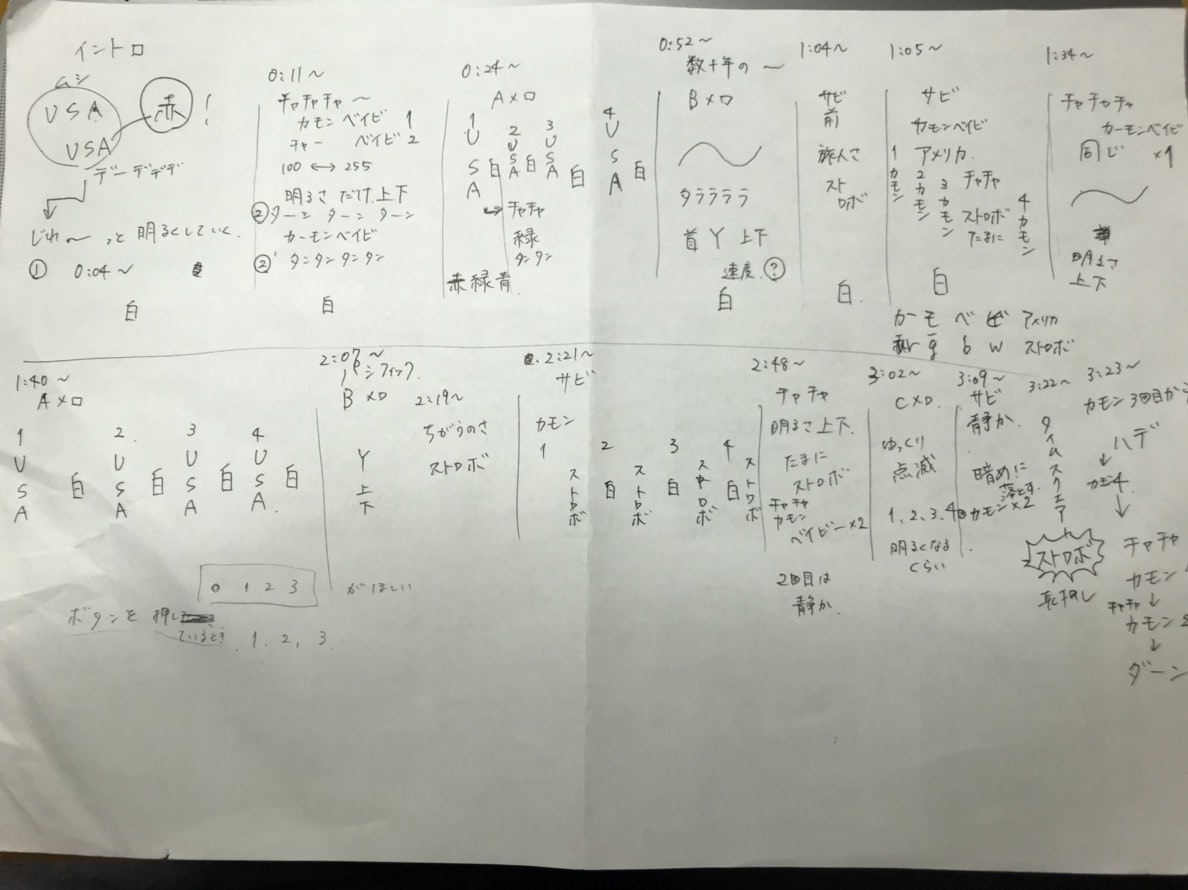 イントロ
ムシ
USA
USA
赤!
デーデデデ
じわ〜っと明るくしていく
① 0:04〜
白
0:11〜
チャチャチャ〜
カモンベイビ 1
チャー ベイビ 2
100 ↔ 255
明るさだけ上下
②ターン ターン ターン
カーモンベイビ
②' タンタンタンタン
白
0:24〜
Aメロ
1 USA 白
2 USA 白
3 USA 白
4 USA 白
→チャチャ
緑
タンタン
赤緑青
0:52〜
数十年の〜
Bメロ
タララララ
首 Y 上下
速度?
白
1:04〜
サビ
前
旅人さ
ストロボ
白
1:05〜
サビ
カモンベイビ
アメリカ
1カモン
2カモン
3カモン
4カモン
チャチャ
ストロボ
たまに
白
カー モ ベ ビ アメリカ
r g b w ストロボ
1:34〜
チャチャチャ
カーモンベイビ
同じ ×4
明るさ
上下
1:40〜
Aメロ
1 USA 白
2 USA 白
3 USA 白
4 USA 白
0 1 2 3 がほしい
ボタンを押し
ているとき 1, 2, 3
2:07〜
パシフィック
Bメロ
Y
上下
2:19〜
ちがうのさ
ストロボ
2:21〜
サビ
カモン
1 ストロボ 白
2 ストロボ 白
3 ストロボ 白
4 ストロボ
2:48〜
チャチャ
明るさ上下
たまに
ストロボ
チャチャ
カモン
ベイビー×2
2回目は
静か
3:02〜
Cメロ
ゆっくり
点滅
1, 2, 3, 4
明るくなる
くらい
3:09〜
サビ
静か
暗めに
落とす
カモン×2
3:22〜
タイムスクエア
ストロボ
長押し
3:23〜
カモン3回目から
ハデ
↓
カモン4
↓
チャチャ
カモン
チャチャ↓
カモン2
↓
ダーン